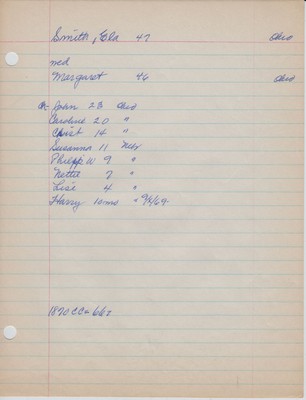 Smith, Ela 47 Ohio
med
Margaret 46 Ohio
ch John 23 Ohio
Caroline 20 "
Christ 14 "
Susanna 11 Nebr
Philipp W 9 "
Nettie 7 "
Lise 4 "
Harry 10mo " 9/69
1870 CC+